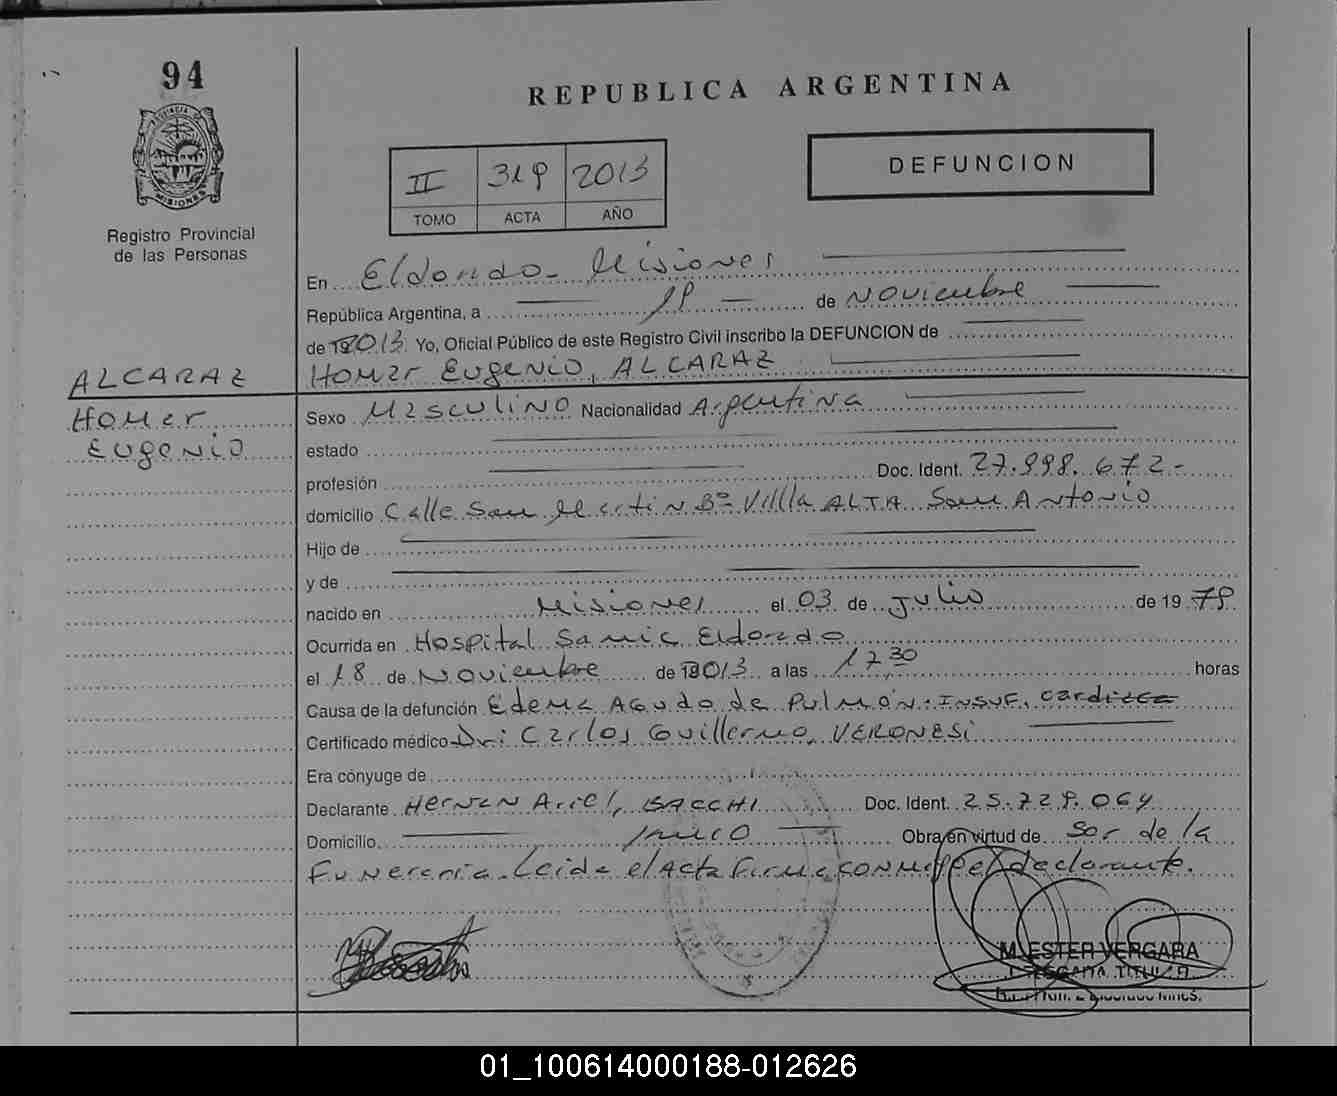 94
REPUBLICA ARGENTINA
PROVINCIA DE
MISIONES
Registro Provincial
de las Personas
II 319 2013
TOMO ACTA AÑO
DEFUNCION
En Eldorado - Misiones
República Argentina, a 19 de Noviembre
de 2013 Yo, Oficial Público de este Registro Civil inscribo la DEFUNCION de
ALCARAZ
Homer Eugenio, ALCARAZ
Homer
Eugenio
Sexo Masculino Nacionalidad Argentina
estado
profesión Doc. Ident. 27.998.672-
domicilio Calle San Martin Bº Villla ALTA San Antonio
Hijo de
y de
nacido en Misiones el 03 de Julio de 1979
Ocurrida en Hospital Samic Eldorado
el 18 de Noviembre de 2013 a las 17,30 horas
Causa de la defunción Edema Agudo de Pulmón. Insuf. cardiaca
Certificado médico Dr: Carlos Guillermo, VERONESI
Era cónyuge de
Declarante Hernan Ariel, BACCHI Doc. Ident. 25.729.064
Domicilio Obra en virtud de Ser de la
Funeraria. Leida el Acta Firma conmigo el declarante.
M. ESTER VERGARA
01_100614000188-012626